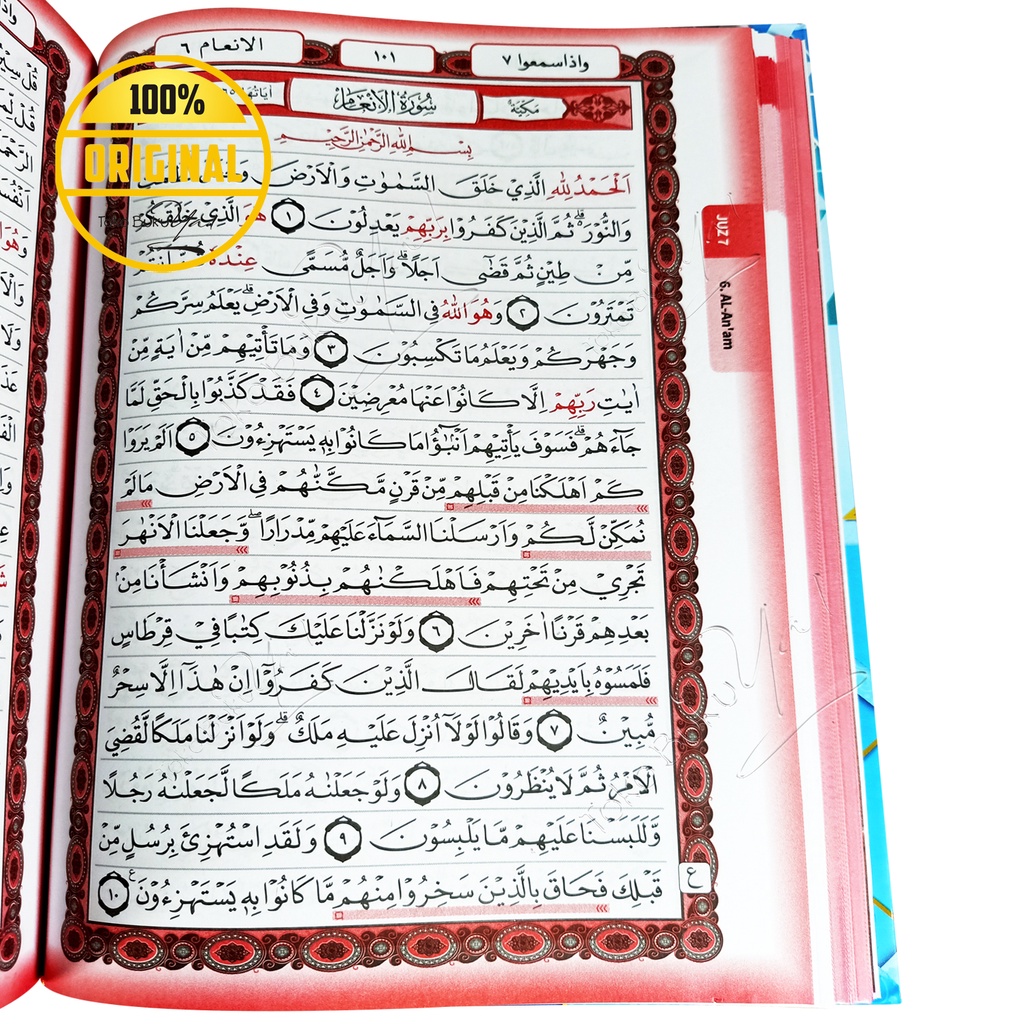 واذاسمعوا ٧
١٠١
الانعام ٦
مكية
سورة الانعام
بِسْمِ اللهِ الرَّحْمٰنِ الرَّحِيْمِ
اَلْحَمْدُ لِلّٰهِ الَّذِيْ خَلَقَ السَّمٰوٰتِ وَالْاَرْضَ
وَالنُّوْرَ ەۗ ثُمَّ الَّذِيْنَ كَفَرُوْا بِرَبِّهِمْ يَعْدِلُوْنَ ١ هُوَ الَّذِيْ خَلَقَكُمْ
مِّنْ طِيْنٍ ثُمَّ قَضٰٓى اَجَلًا ۗوَاَجَلٌ مُّسَمًّى عِنْدَهٗ
تَمْتَرُوْنَ ٢ وَهُوَ اللّٰهُ فِى السَّمٰوٰتِ وَفِى الْاَرْضِۗ يَعْلَمُ سِرَّكُمْ
وَجَهْرَكُمْ وَيَعْلَمُ مَا تَكْسِبُوْنَ ٣ وَمَا تَأْتِيْهِمْ مِّنْ اٰيَةٍ مِّنْ
اٰيٰتِ رَبِّهِمْ اِلَّا كَانُوْا عَنْهَا مُعْرِضِيْنَ ٤ فَقَدْ كَذَّبُوْا بِالْحَقِّ لَمَّا
جَاۤءَهُمْۗ فَسَوْفَ يَأْتِيْهِمْ اَنْۢبـٰۤؤُا مَا كَانُوْا بِهٖ يَسْتَهْزِءُوْنَ ٥ اَلَمْ يَرَوْا
كَمْ اَهْلَكْنَا مِنْ قَبْلِهِمْ مِّنْ قَرْنٍ مَّكَّنّٰهُمْ فِى الْاَرْضِ مَا لَمْ
نُمَكِّنْ لَّكُمْ وَاَرْسَلْنَا السَّمَاۤءَ عَلَيْهِمْ مِّدْرَارًا ۖوَّجَعَلْنَا الْاَنْهٰرَ
تَجْرِيْ مِنْ تَحْتِهِمْ فَاَهْلَكْنٰهُمْ بِذُنُوْبِهِمْ وَاَنْشَأْنَا مِنْۢ
بَعْدِهِمْ قَرْنًا اٰخَرِيْنَ ٦ وَلَوْ نَزَّلْنَا عَلَيْكَ كِتٰبًا فِيْ قِرْطَاسٍ
فَلَمَسُوْهُ بِاَيْدِيْهِمْ لَقَالَ الَّذِيْنَ كَفَرُوْٓا اِنْ هٰذَآ اِلَّا سِحْرٌ
مُّبِيْنٌ ٧ وَقَالُوْا لَوْلَآ اُنْزِلَ عَلَيْهِ مَلَكٌ ۗوَلَوْ اَنْزَلْنَا مَلَكًا لَّقُضِيَ
الْاَمْرُ ثُمَّ لَا يُنْظَرُوْنَ ٨ وَلَوْ جَعَلْنٰهُ مَلَكًا لَّجَعَلْنٰهُ رَجُلًا
وَّلَلَبَسْنَا عَلَيْهِمْ مَّا يَلْبِسُوْنَ ٩ وَلَقَدِ اسْتُهْزِئَ بِرُسُلٍ مِّنْ
قَبْلِكَ فَحَاقَ بِالَّذِيْنَ سَخِرُوْا مِنْهُمْ مَّا كَانُوْا بِهٖ يَسْتَهْزِءُوْنَ ࣖ ١٠
ع
JUZ 7
6. AL-An'am
100%
ORIGINAL